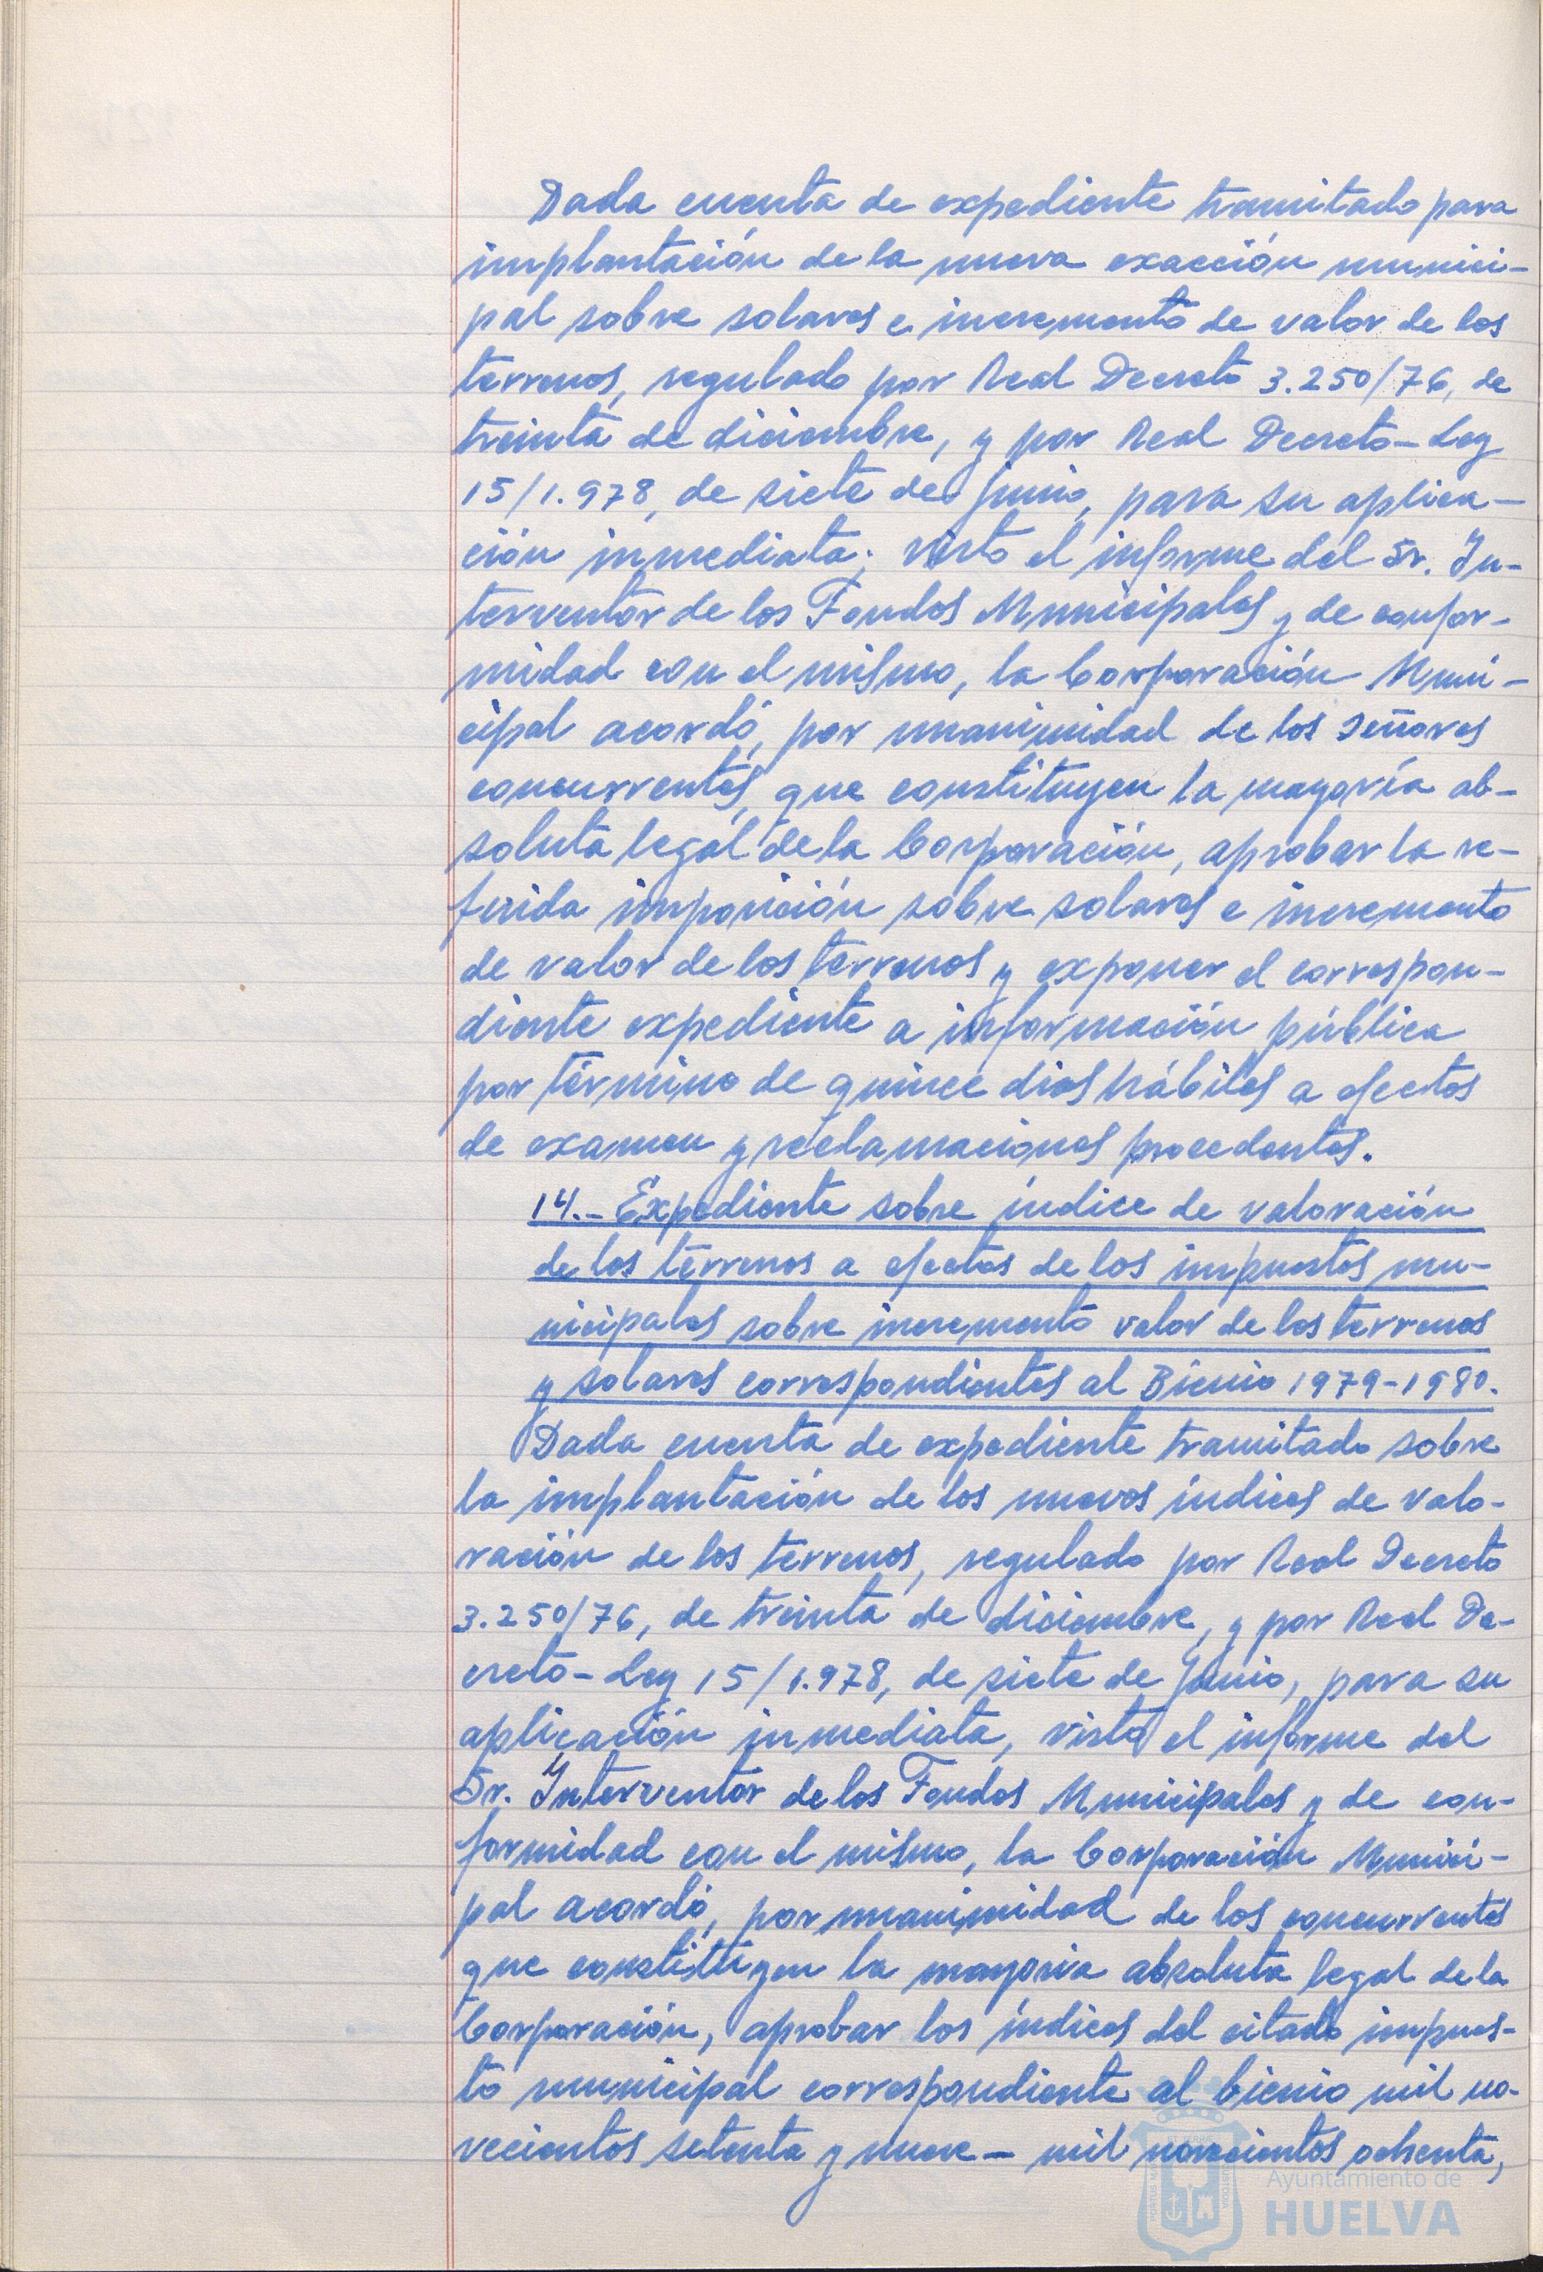 Dada cuenta de expediente tramitado para
implantación de la nueva exacción munici-
pal sobre solares e incremento de valor de los
terrenos, regulado por Real Decreto 3.250/76, de
treinta de diciembre, y por Real Decreto-Ley
15/1.978, de siete de junio, para su aplica-
ción inmediata; visto el informe del Sr. In-
terventor de los Fondos Municipales y de confor-
midad con el mismo, la Corporación Muni-
cipal acordó, por unanimidad de los Señores
concurrentes, que constituyen la mayoría ab-
soluta legal de la Corporación, aprobar la re-
ferida imposición sobre solares e incremento
de valor de los terrenos y exponer el correspon-
diente expediente a información pública
por término de quince dias hábiles a efectos
de examen y reclamaciones procedentes.
14.- Expediente sobre índice de valoración
de los terrenos a efectos de los impuestos mu-
nicipales sobre incremento valor de los terrenos
y solares correspondientes al Bienio 1979-1980.
Dada cuenta de expediente tramitado sobre
la implantación de los nuevos índices de valo-
ración de los terrenos, regulado por Real Decreto
3.250/76, de treinta de diciembre, y por Real De-
creto-Ley 15/1.978, de siete de junio, para su
aplicación inmediata, visto el informe del
Sr. Interventor de los Fondos Municipales y de con-
formidad con el mismo, la Corporación Munici-
pal acordó, por unanimidad de los concurrentes
que constituyen la mayoria absoluta legal de la
Corporación, aprobar los índices del citado impues-
to municipal correspondiente al bienio mil no-
vecientos setenta y nueve - mil novecientos ochenta,
Ayuntamiento de
HUELVA